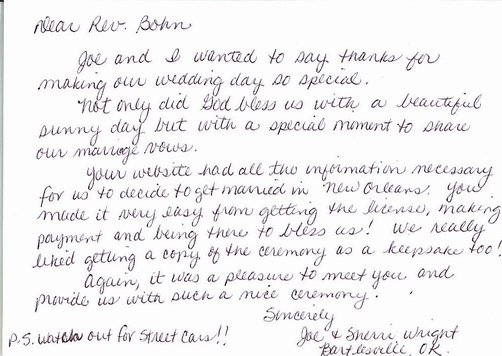 Dear Rev. Bohn
Joe and I wanted to say thanks for
making our wedding day so special.
Not only did God bless us with a beautiful
sunny day but with a special moment to share
our marriage vows.
Your website had all the information necessary
for us to decide to get married in New Orleans. You
made it very easy from getting the license, making
payment and being there to bless us! We really
liked getting a copy of the ceremony as a keepsake too!
Again, it was a pleasure to meet you and
provide us with such a nice ceremony.
Sincerely
Joe & Sherri Wright
Bartlesville, OK.
P.S. Watch out for Street Cars!!